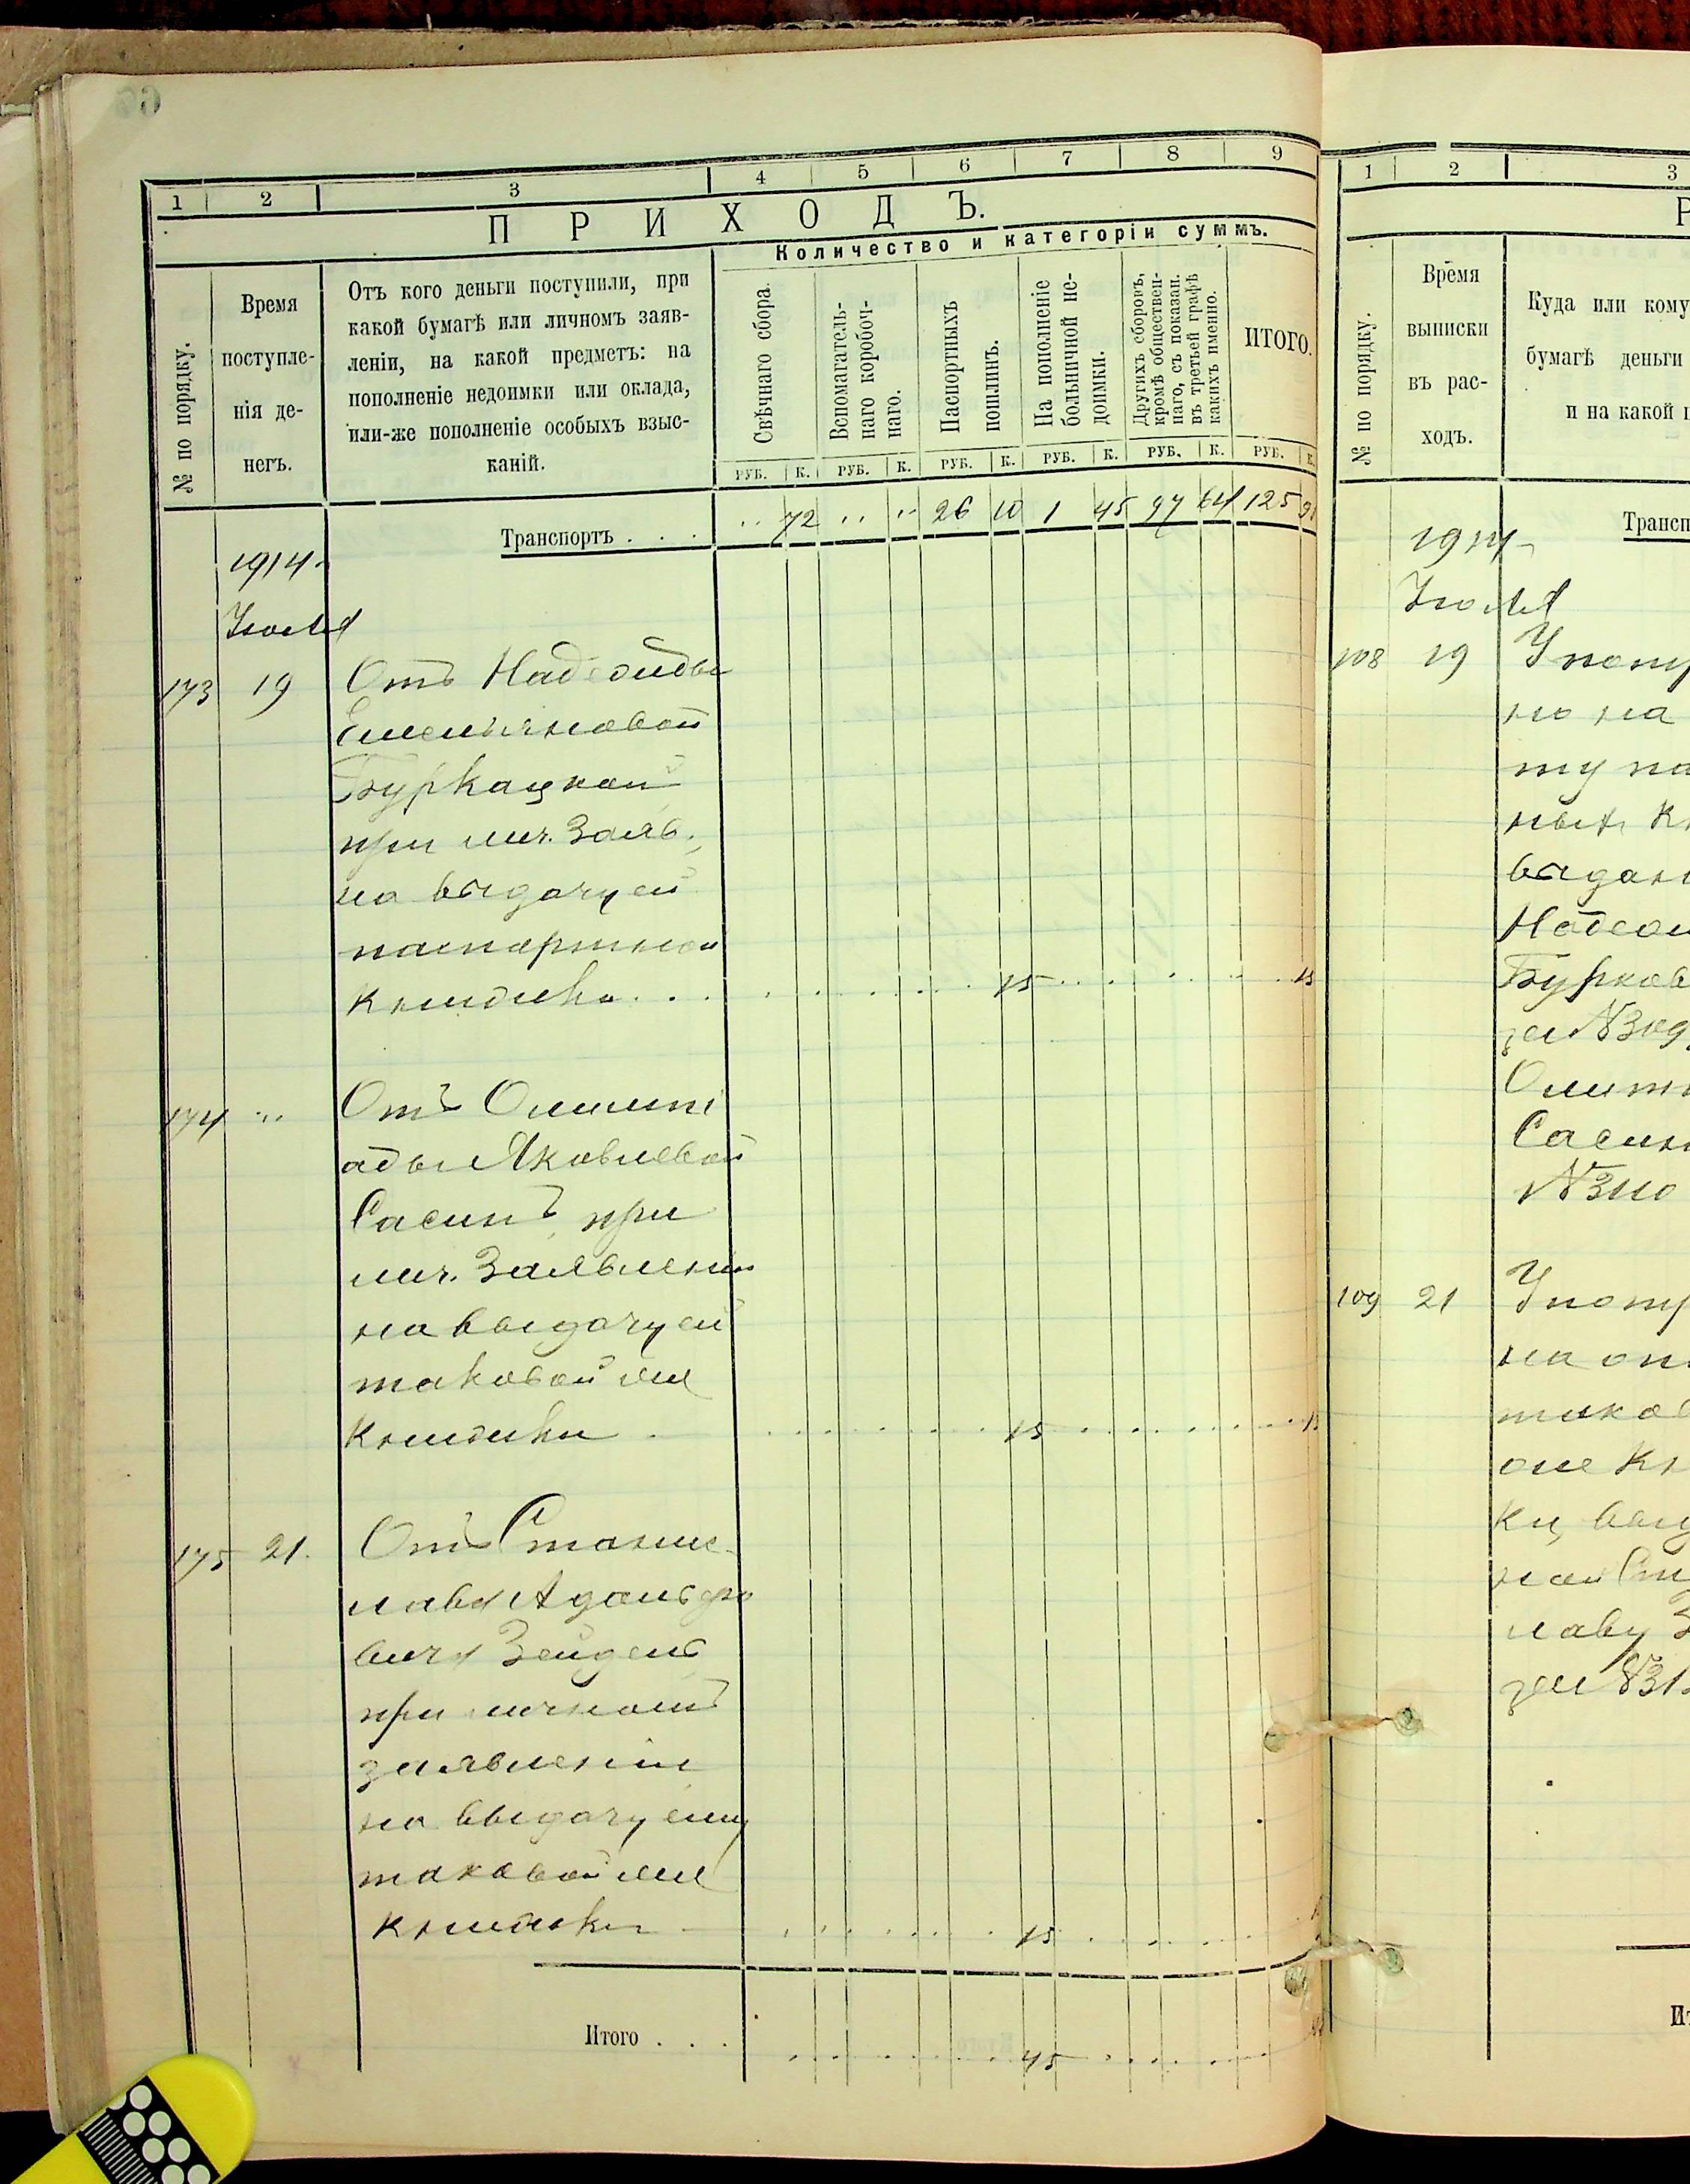 1 2 3 4 5 6 7 8 9
ПРИХОДЪ.
Количество и категоріи суммъ.
№ по порядку.
Время
поступле-
нія де-
негъ.
Отъ кого деньги поступили, при
какой бумагѣ или личномъ заяв-
леніи, на какой предметъ: на
пополненіе недоимки или оклада,
или-же пополненіе особыхъ взыс-
каній.
Свѣчнаго сбора.
Вспомагатель-
наго коробоч-
наго.
Паспортныхъ
пошлинъ.
На пополненіе
больничной не-
доимки.
Другихъ сборовъ,
кромѣ обществен-
наго, съ показан.
въ третьей графѣ
какихъ именно.
ИТОГО.
РУБ. К. РУБ. К. РУБ. К. РУБ. К. РУБ. К. РУБ. К.
Транспортъ . . . " 72 " " 26 10 1 45 97 64 125 91
1914
Іюля
173 19 Отъ Надежды
Емельяновой
при лич. Заяв.
на выдачу ей
паспортной
книжки . . . 15 15
174 " Отъ Олимпі
ады Яковлевой
Сасинъ, при
лич. Заявленіи
на выдачу ей
таковой же
книжки 15 15
175 21. Отъ Станис-
лава Адольфо
вича Зейдель
при личномъ
заявленіи
на выдачу ему
таковой же
книжки 15
Итого . . . 45
1 2 3
Р
№ по порядку.
Время
выписки
въ рас-
ходъ.
Куда или кому
бумагѣ деньги
и на какой п
Трансп
1914
Іюля
108 19 Употр
но на
ту па
ных кн
выдан
Надеж
Бурков
за №309
Олимп
Сасин
№310
109 21 Употр
на оп
таков
же кн
ки, выд
ной Ст
лаву З
за №31
Ит